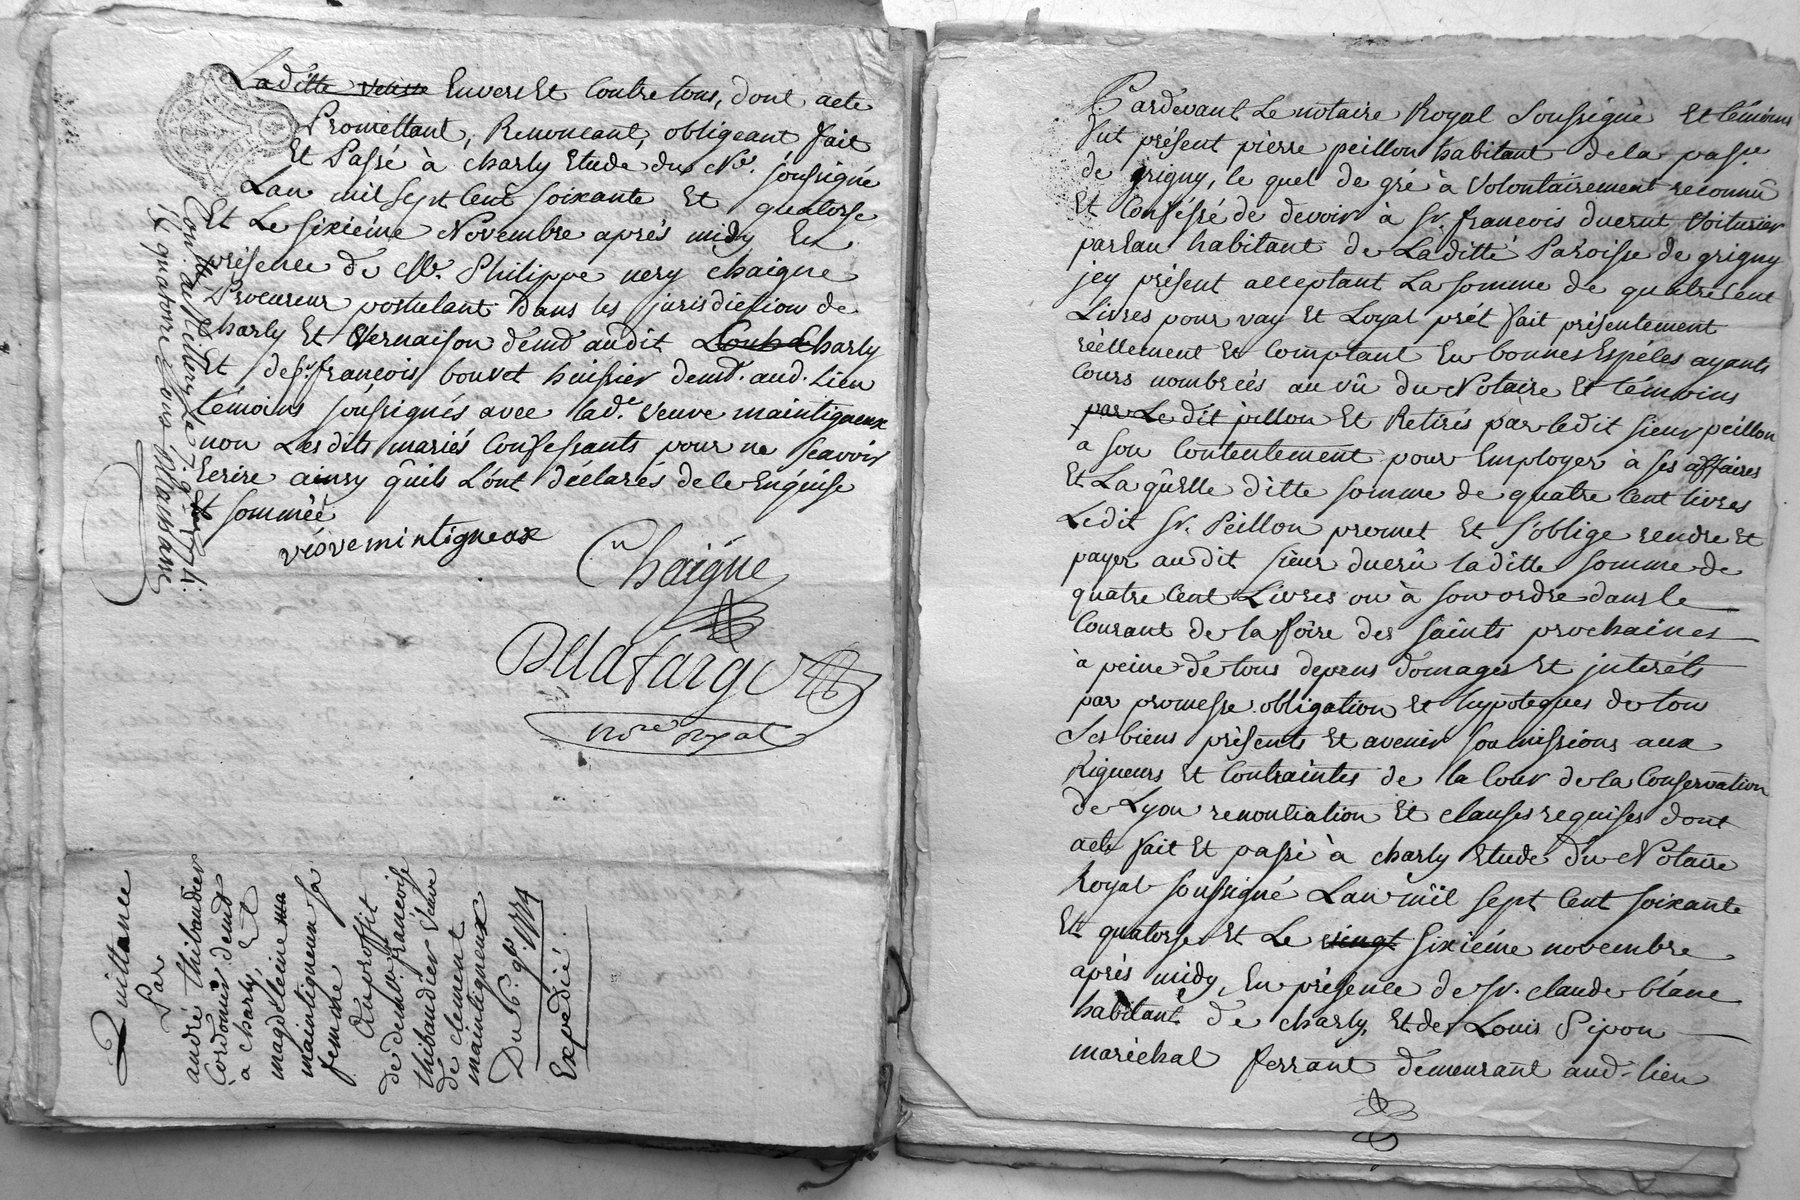 Laditte veuve Envers Et Contre tous, dont acte
Promettant, Renoncant, obligeant fait
Et Passé à charly Etude du Nre. soussigné
Lan mil sept Cent soixante Et quatorse
Et Le sixiéme Novembre aprés midy En
présence de Me. Philippe nery chaigne
Procureur postulant Dans les jurisdiction de
Charly Et Vernaison demt audit Charly
Et de sr. francois bouvet huissier demt. aud. Lien
témoins soussignés avec lade. veuve maintigneux
non Lesdits mariés Confessants pour ne scavoir
Ecrire ainsy qûils L'ont déclarés de ce Enquise
Et sommée
véove mintigneax
Chaigne
Delafarge
nore royal
1774
Quittance
Par
andré thibaudier
Cordonier demt
a charly, Et
magdeleine ma
maintigneux sa
femme
Au proffit
de demlle. francoise
thibaudier veuve
de clement
maintigneux
Du 6e. 9bre 1774
Expedié
Pardevant Le notaire Royal Soussigné Et témoins
fut présent pierre peillon habitant de la passe
de grigny, le quel de gré à Volontairement reconnû
Et Confessé de devoir à sr. francois duerut Voiturier
par Eau habitant de Laditte Paroisse de grigny
jcy présent acceptant La somme de quatre cent
Livres pour vay Et Loyal prét fait présentement
réellement Et Comptant En bonnes Espéces ayants
Cours nombreés au vû du Notaire Et témoins
par Le dit pillon Et Retirés par ledit sieur peillon
a son Contentement pour Employer à ses affaires
Et La qûelle ditte somme de quatre Cent livres
Ledit sr. Peillon promet Et s'oblige rendre Et
payer audit sieur duerû laditte somme de
quatre Cent Livres ou à son ordre dans le
Courant de la foire des saints prochaines
à peine de tous depens domages Et jnteréts
par promesse obligation Et hypoteques de tous
ses biens présents Et avenir soumissions aux
Rigueurs Et Contraintes de la Cour de la Conservation
de Lyon renontiation Et clauses requises dont
acte fait Et passé à charly Etude du Notaire
Royal soussigné Lan mil sept Cent soixante
Et quatorse Et Le vingt sixiéme novembre
aprés midy, En présence de sr. claude blanc
habitant de charly, Et de Louis Pipon
maréchal ferrant demeurant aud. lieu